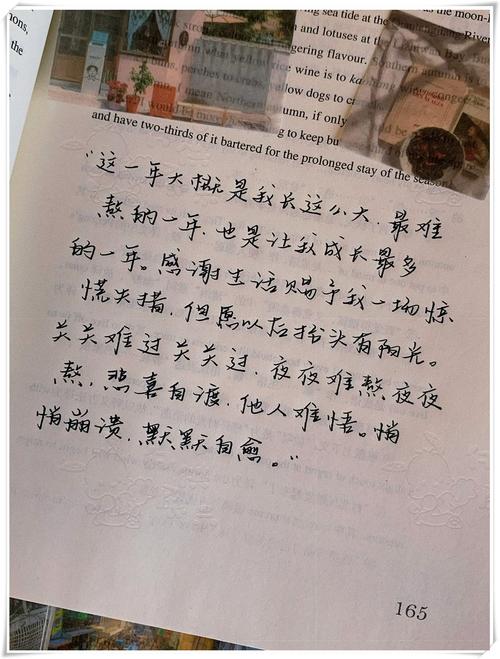 as the moon-l
ons,
the
ng sea tide at the
River
and lotuses at the
gering flavour. Southern autumn is
wine is to
yellow dogs to
mean Northern
umn, if only
g to keep bu
and have two-thirds of it bartered for the prolonged stay of the season
“这一年大概是我长这么大，最难
熬的一年，也是让我成长最多
的一年。感谢生活赐予我一场惊
慌失措，但愿以后抬头有阳光。
关关难过关关过，夜夜难熬夜夜
熬，悲喜自渡，他人难悟。悄
悄崩溃，默默自愈。”
165